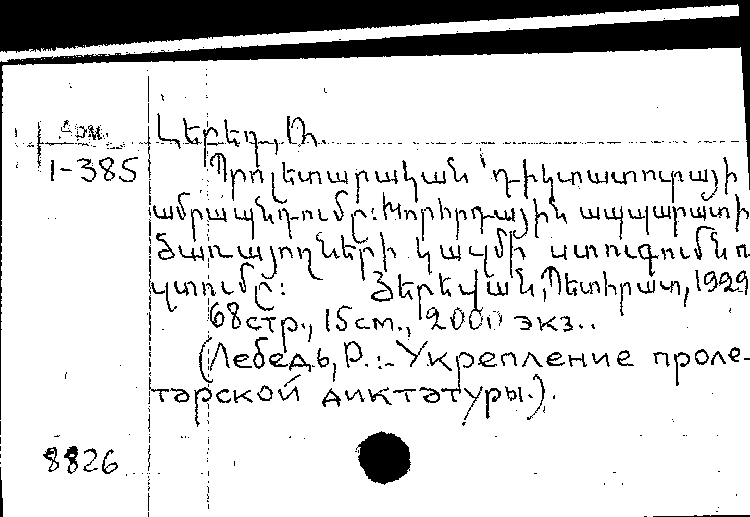 Арм.
1-385
Լեբեդ, Դ.
Պրոլետարական դիկտատուրայի
ամրապնդումը: Խորհրդային ապպարատի
ծառայողների կազմի ստուգումն ու
զտումը: Յերեվան, Պետհրատ, 1929
68стр., 15см., 2000 экз..
(Лебедь, Д.:-Укрепление проле-
тарской диктатуры.).
8826